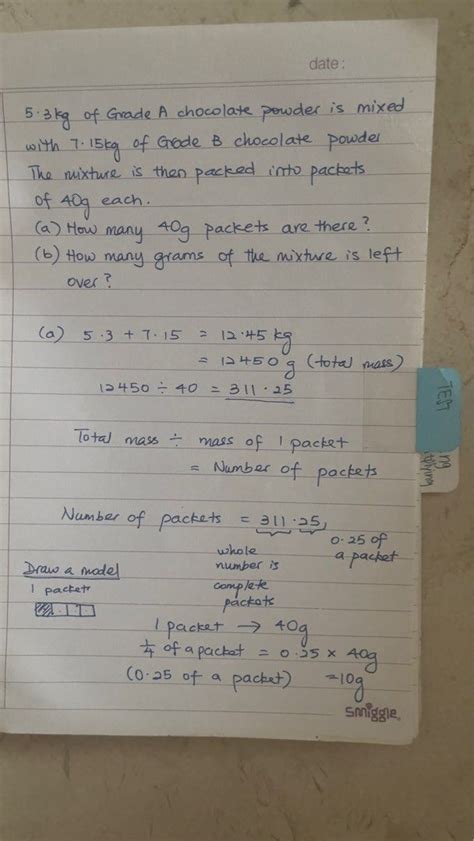 date:
5.3kg of Grade A chocolate powder is mixed
with 7.15kg of Grade B chocolate powder
The mixture is then packed into packets
of 40g each.
(a) How many 40g packets are there?
(b) How many grams of the mixture is left
over?
(a) 5.3 + 7.15 = 12.45 kg
= 12450 g (total mass)
12450 ÷ 40 = 311.25
TEST
Total mass ÷ mass of 1 packet
= Number of packets
Number of packets = 311.25
whole
number is
complete
packets
0.25 of
a packet
Draw a model
1 packets
1 packet → 40g
1/4 of a packet = 0.25 × 40g
(0.25 of a packet) =10g
smiggle